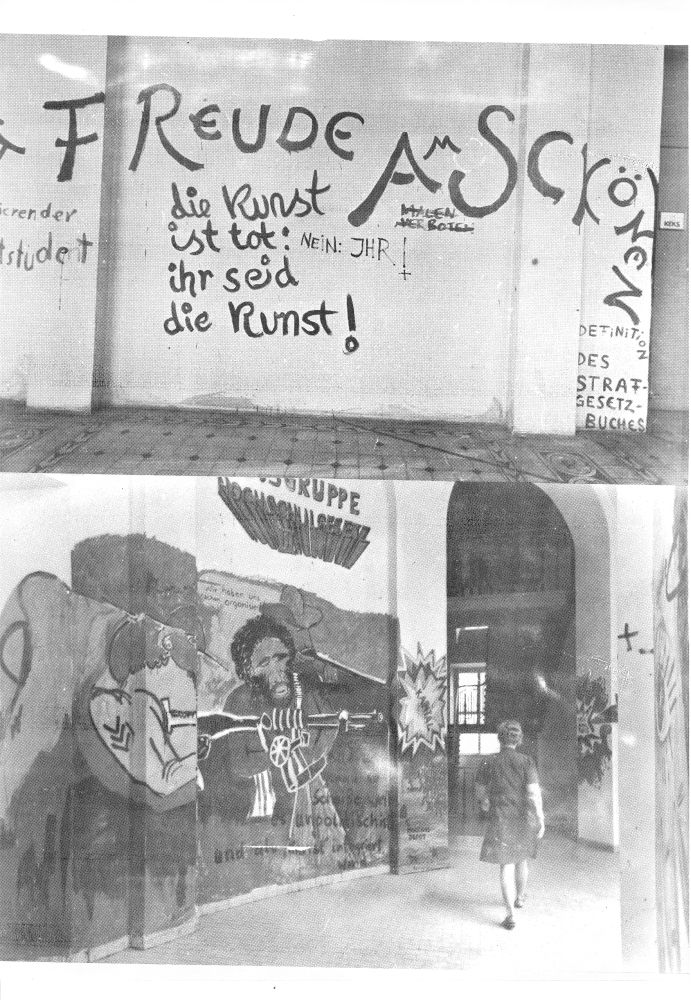 FREUDE AM SCHÖNEN
ierender
tstudent
die Kunst
ist tot:
ihr seid
die Kunst!
NEIN: JHR!
MALEN
VERBOTEN
KEKS
DEFINITION
DES
STRAF-
GESETZ-
BUCHES
SGRUPPE
HOCHSCHULGESETZ
wir haben uns
organisier
Scheiße
unpolitisch
und integriert